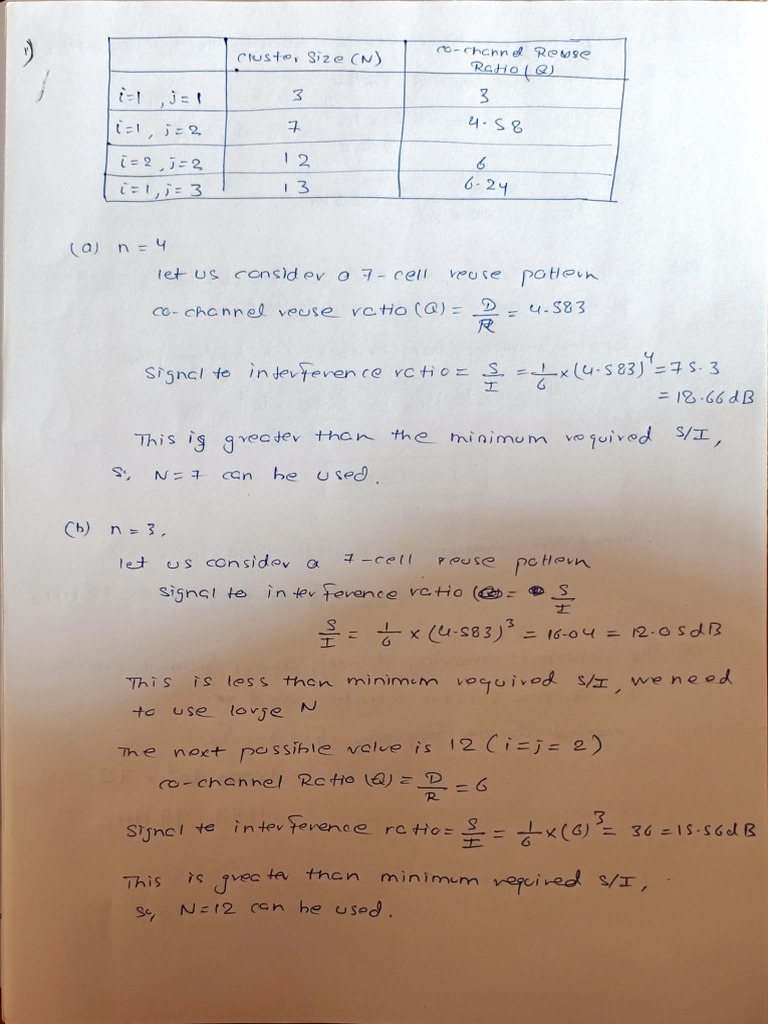 1)
Cluster Size (N) co-channel Reuse Ratio (Q)
i=1, j=1 3 3
i=1, j=2 7 4.58
i=2, j=2 12 6
i=1, j=3 13 6.24
(a) n = 4
let us consider a 7-cell reuse pattern
co-channel reuse ratio (Q) = D/R = 4.583
Signal to interference ratio = S/I = 1/6 × (4.583)^4 = 75.3
= 18.66 dB
This is greater than the minimum required S/I,
So, N = 7 can be used.
(b) n = 3,
let us consider a 7-cell reuse pattern
signal to interference ratio = S/I
S/I = 1/6 × (4.583)^3 = 16.04 = 12.05 dB
This is less than minimum required S/I, we need
to use large N
The next possible value is 12 (i=j=2)
co-channel Ratio (Q) = D/R = 6
Signal to interference ratio = S/I = 1/6 × (6)^3 = 36 = 15.56 dB
This is greater than minimum required S/I,
So, N=12 can be used.